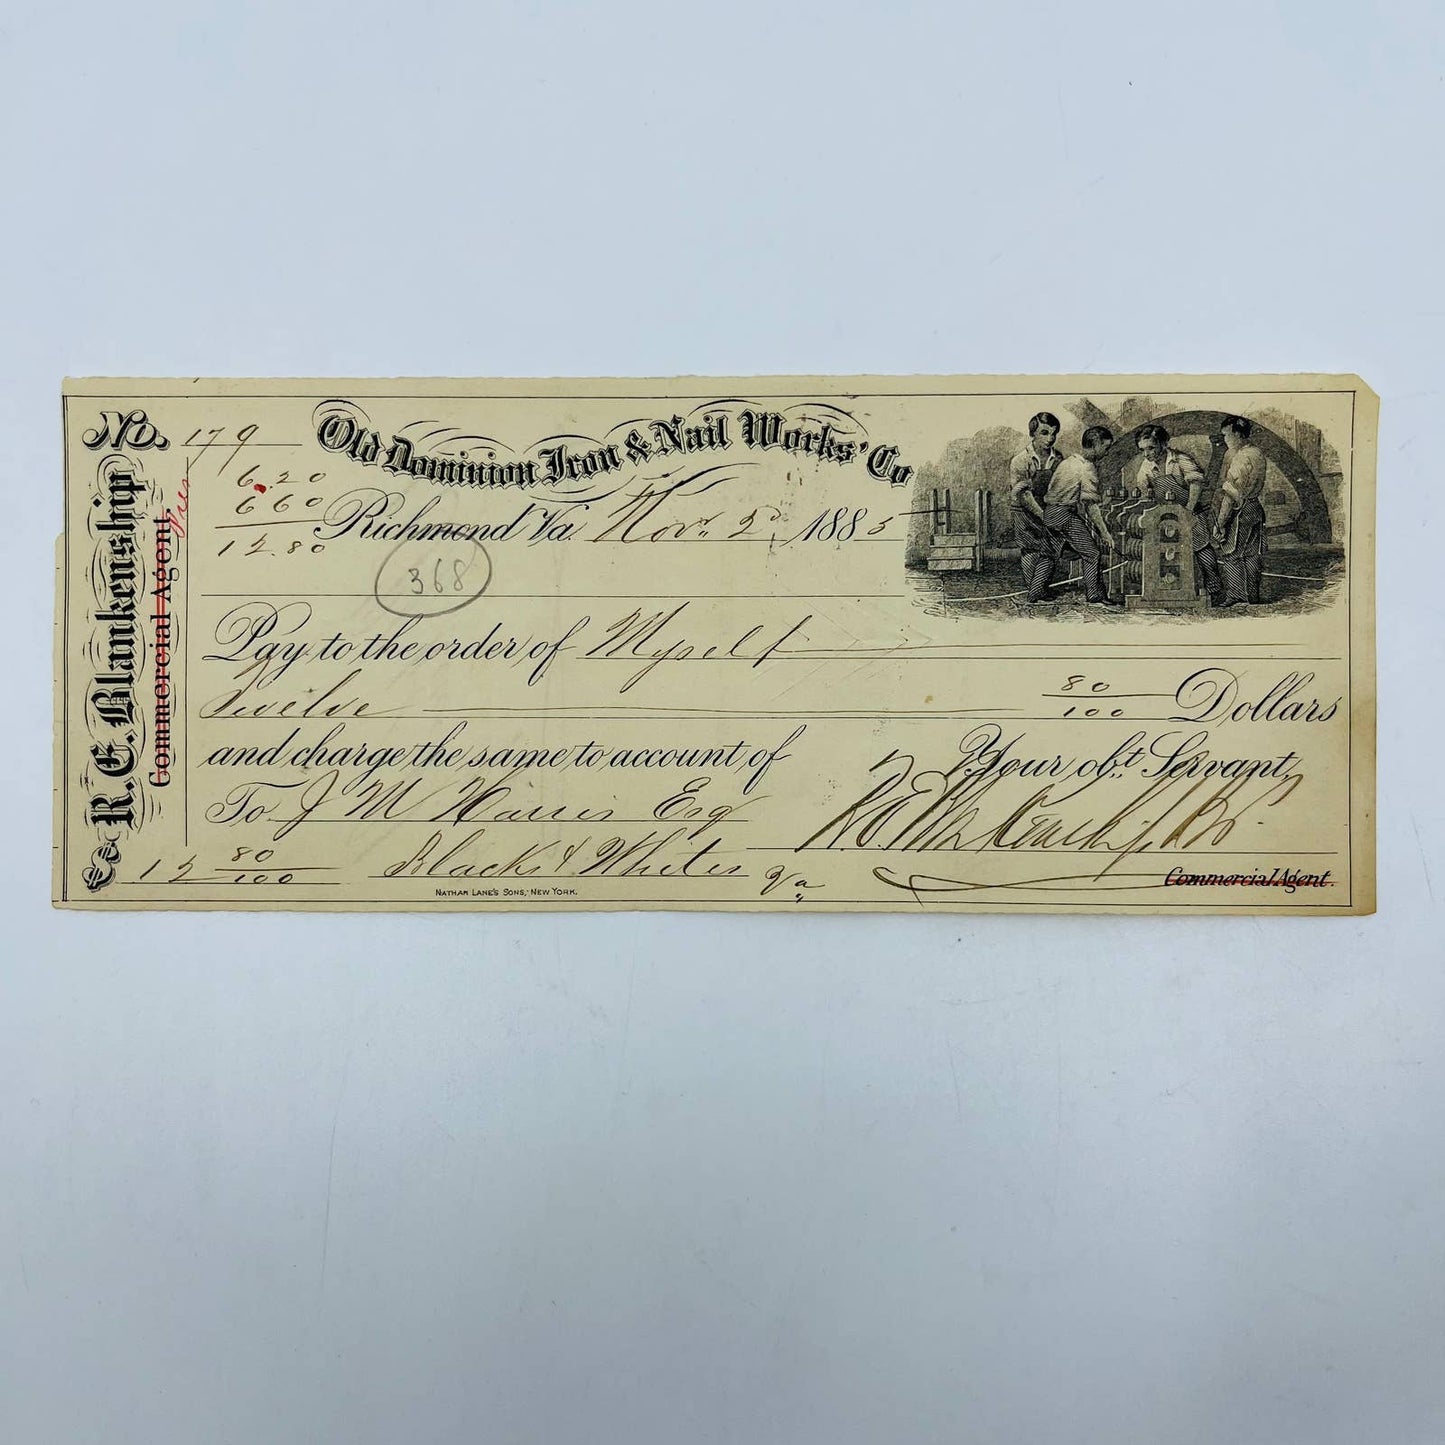 No. 179
Old Dominion Iron & Nail Works' Co
6.20
6 60
12.80
Richmond Va. Nov. 2d, 1885
368
Pay to the order of Myself
Twelve 80/100 Dollars
and charge the same to account of
Your obt. Servant,
To J M Harris Esq
R. E. Blankenship
$ 12 80/100 Blacks & Whites Va
Commercial Agent.
NATHAN LANE'S SONS, NEW YORK.
R. E. Blankenship
Commercial Agent.
Pres